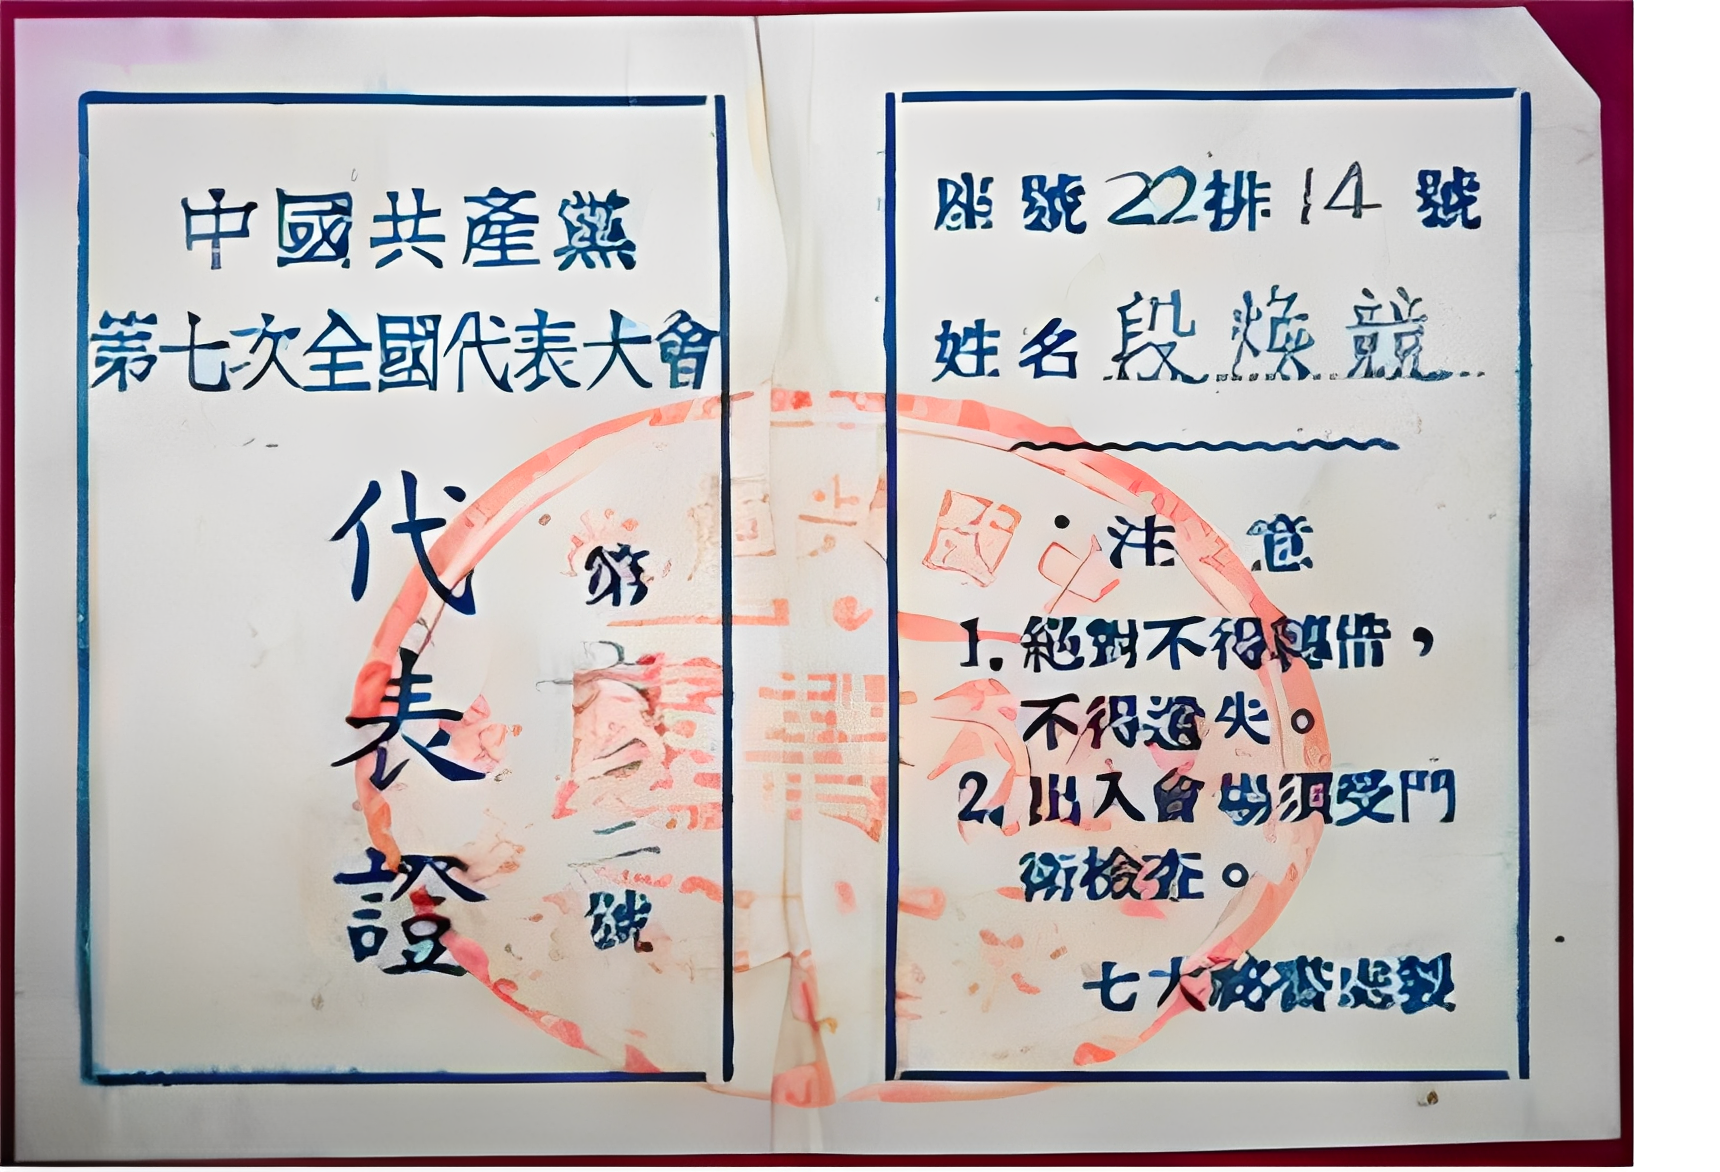 中國共產黨
第七次全國代表大會
代表證
第
二號
座號22排14號
姓名 段焕競
注意
1. 絕對不得轉借，
不得遺失。
2. 出入會場須受門
衛檢查。
七大秘書處製